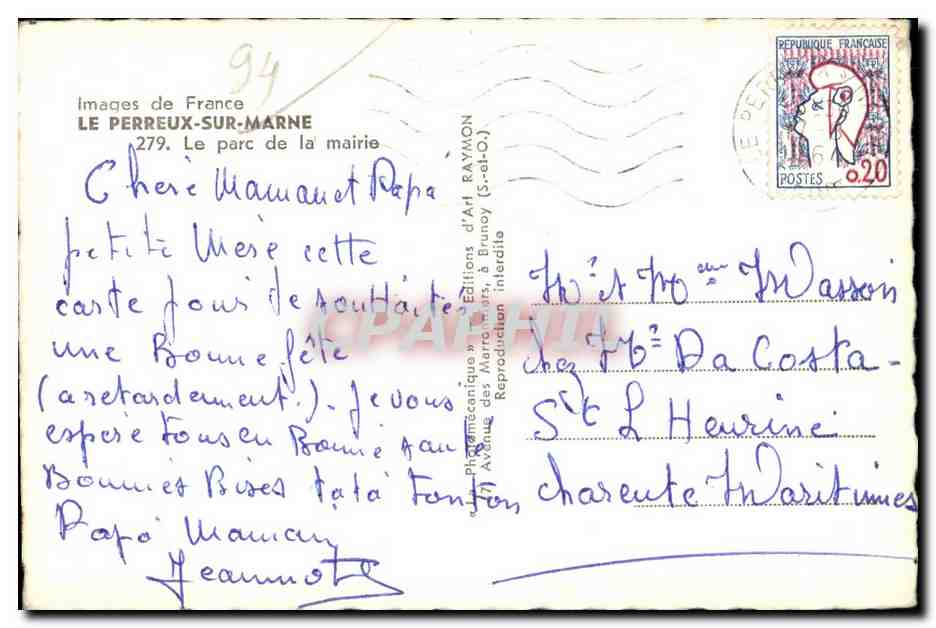 94
Images de France
LE PERREUX-SUR-MARNE
279. Le parc de la mairie
Chère Maman et Papa
petite Mère cette
carte pour te souhaiter
une Bonne fête
(a retardement.). Je vous
espère tous en Bonne sante
Bonnes Bises tata Tonton
Papa Maman
Jeannot
« Photomécanique » Editions d'Art RAYMON
Avenue des Marronniers, à Brunoy (S.-et-O.)
Reproduction interdite
REPUBLIQUE FRANÇAISE
POSTES 0.20
LE PERR
Mr et Mme Masson
chez Mr Da Costa-
St L Heurine
Charente Maritimes
CPAPHIL